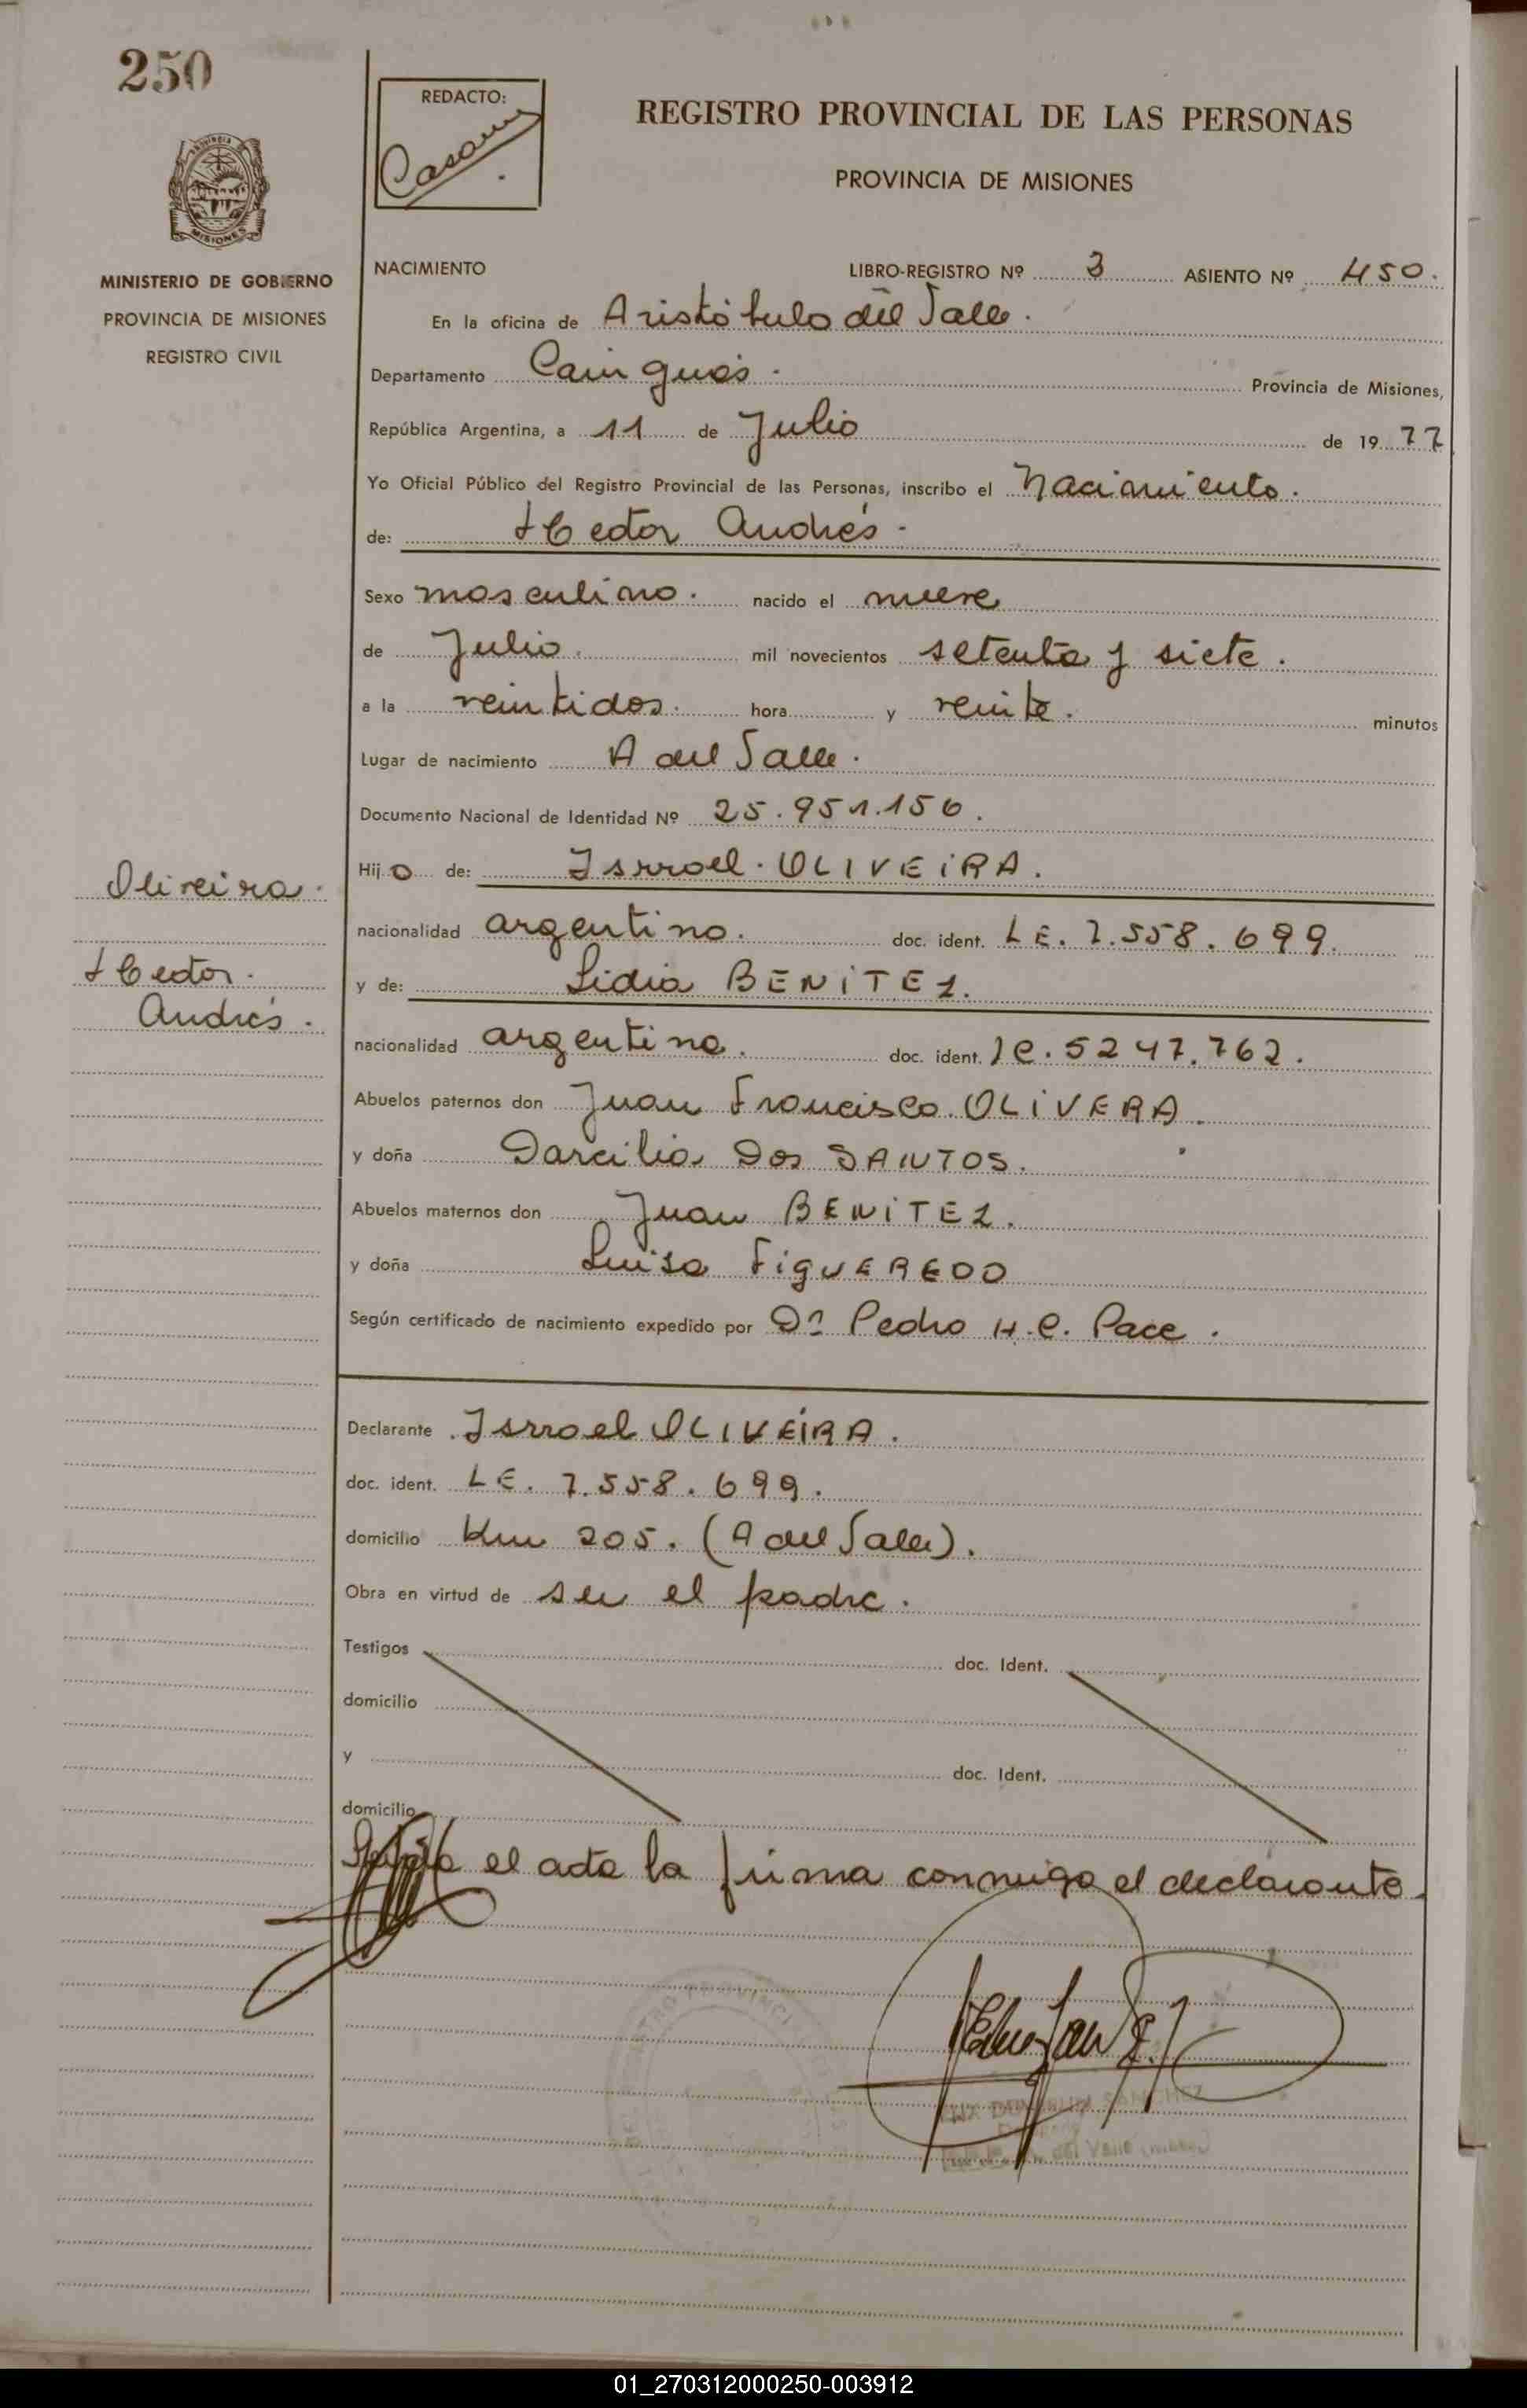 250
REDACTO:
REGISTRO PROVINCIAL DE LAS PERSONAS
PROVINCIA DE MISIONES
MISIONES
MINISTERIO DE GOBIERNO
PROVINCIA DE MISIONES
REGISTRO CIVIL
NACIMIENTO LIBRO-REGISTRO Nº 3 ASIENTO Nº 450.
En la oficina de Aristóbulo del Valle.
Departamento Cainguás. Provincia de Misiones,
República Argentina, a 11 de Julio de 1977
Yo Oficial Público del Registro Provincial de las Personas, inscribo el Nacimiento.
de: Hector Andrés.
Sexo masculino. nacido el nueve
de Julio. mil novecientos setenta y siete.
a la veintidos. hora y veinte. minutos
Lugar de nacimiento A del Valle.
Documento Nacional de Identidad Nº 25.951.156.
Hijo de: Isrrael. OLIVEIRA.
nacionalidad argentino. doc. ident. LE. 7.558.699.
y de: Lidia BENITEZ.
nacionalidad argentina. doc. ident. LC. 5247.762.
Abuelos paternos don Juan Francisco OLIVERA.
y doña Darcilia Dos SANTOS.
Abuelos maternos don Juan BENITEZ.
y doña Luisa FigUEREDO
Según certificado de nacimiento expedido por Dr Pedro H.C. Pace.
Oliveira.
Hector.
Andrés.
Declarante Isrrael OLIVEIRA.
doc. ident. LE. 7.558.699.
domicilio Km 205. (A del Valle).
Obra en virtud de ser el padre.
Testigos doc. Ident.
domicilio
y doc. Ident.
domicilio
el acta la firma conmigo el declarante.
SANCHEZ
del Valle
01_270312000250-003912